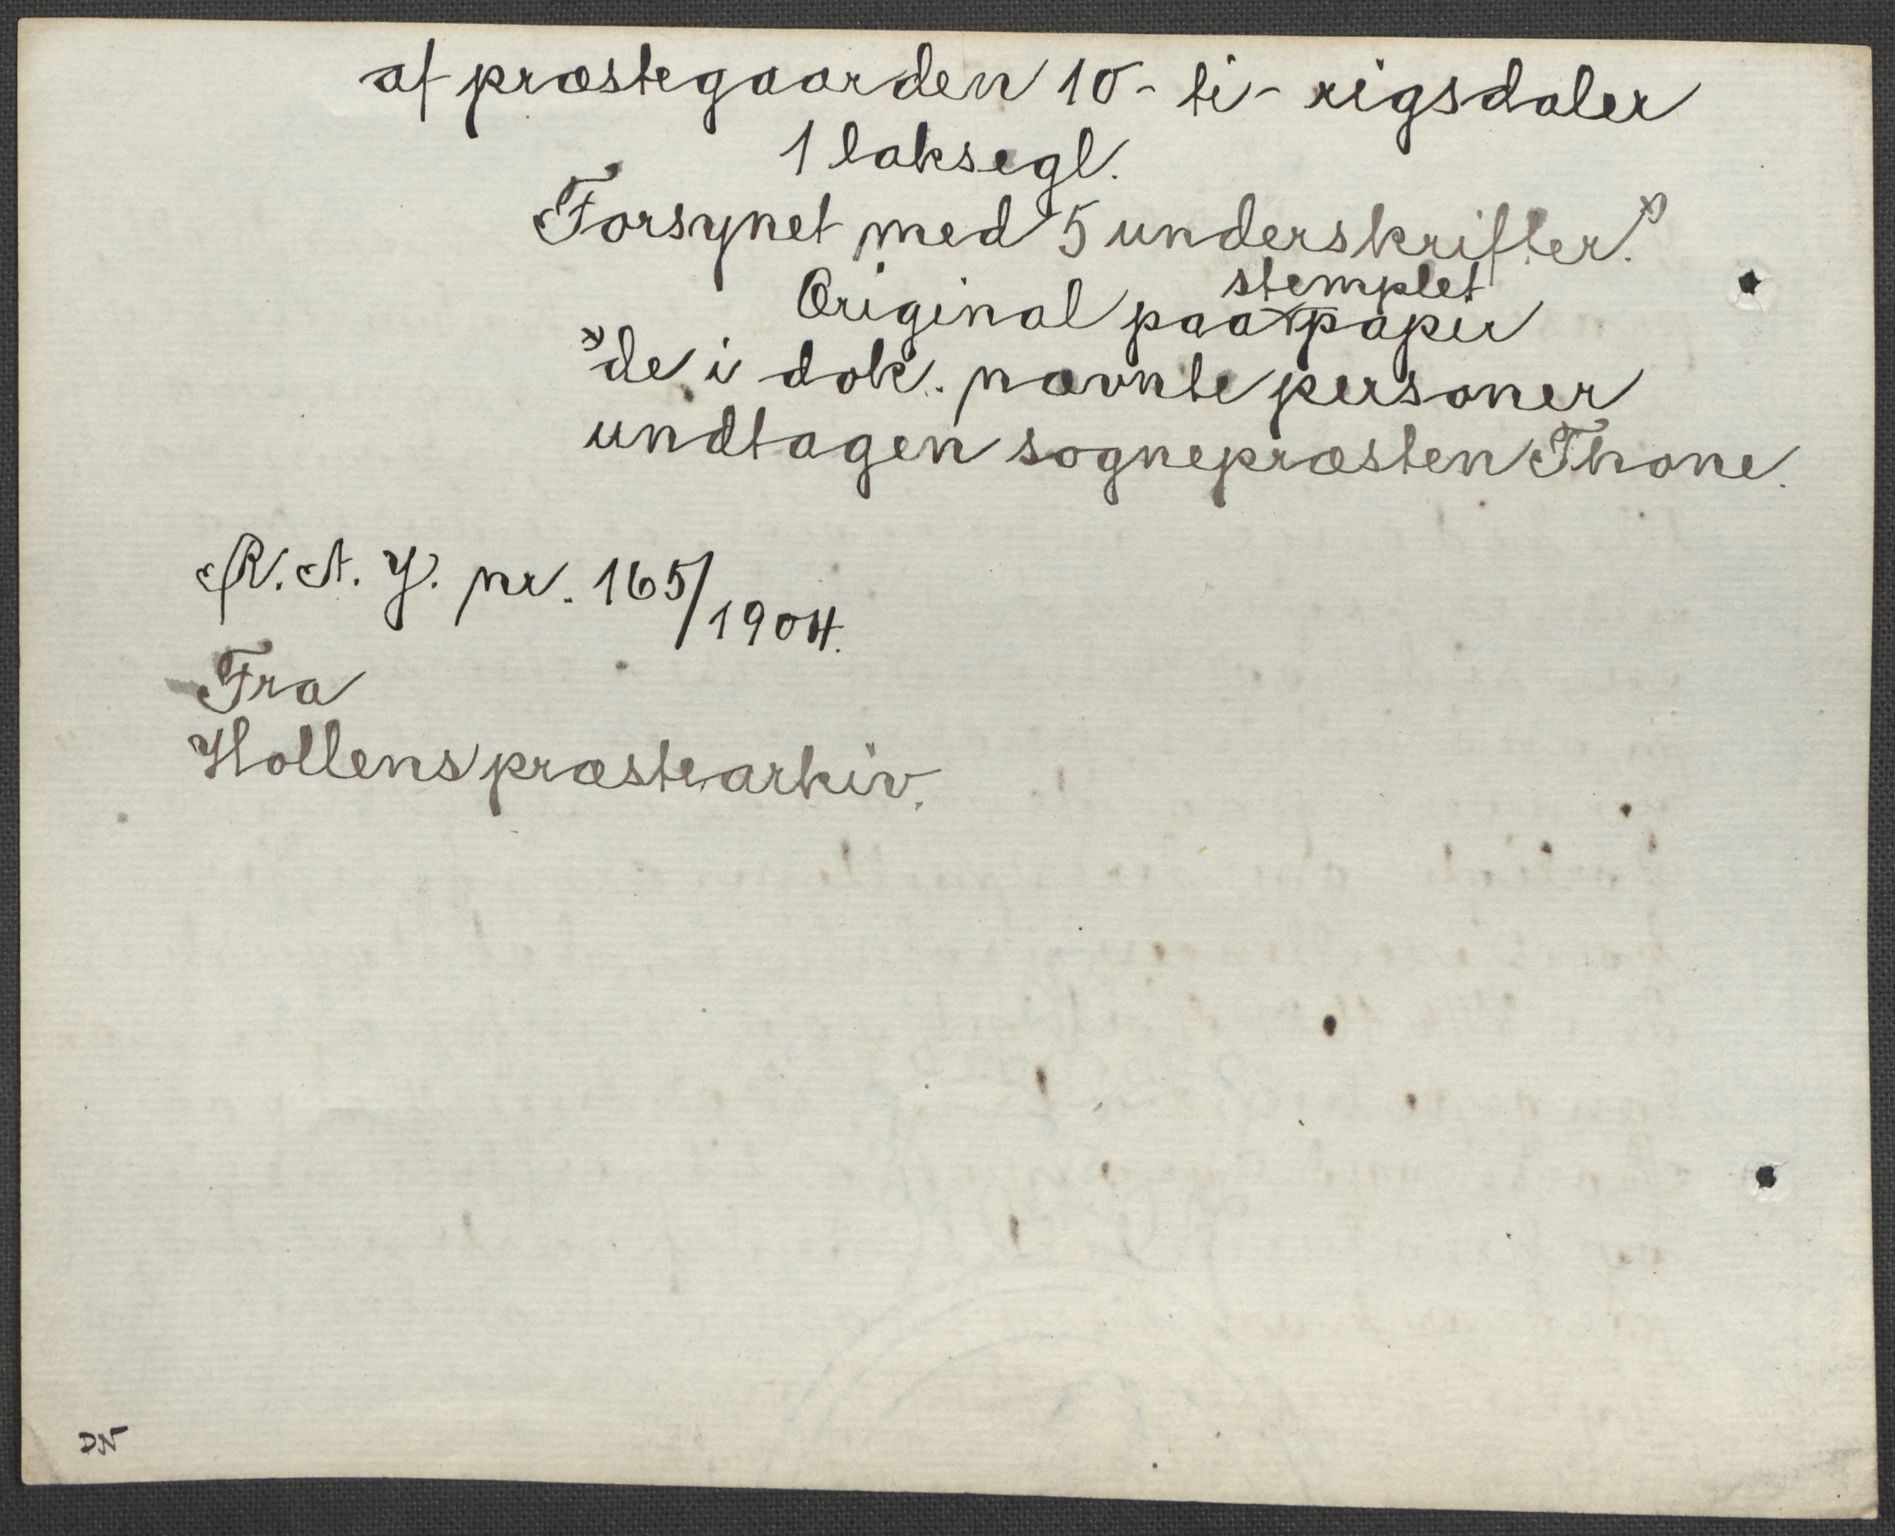 af præstegaarden 10 - ti - rigsdaler
1 laksegl.
Forsynet med 5 underskrifter. x)
stemplet
Original paa papir
x) de i dok. nævnte personer
undtagen sognepræsten Thone.
R. A. J. nr. 165/1904.
Fra
Hollens præstearkiv.
DN